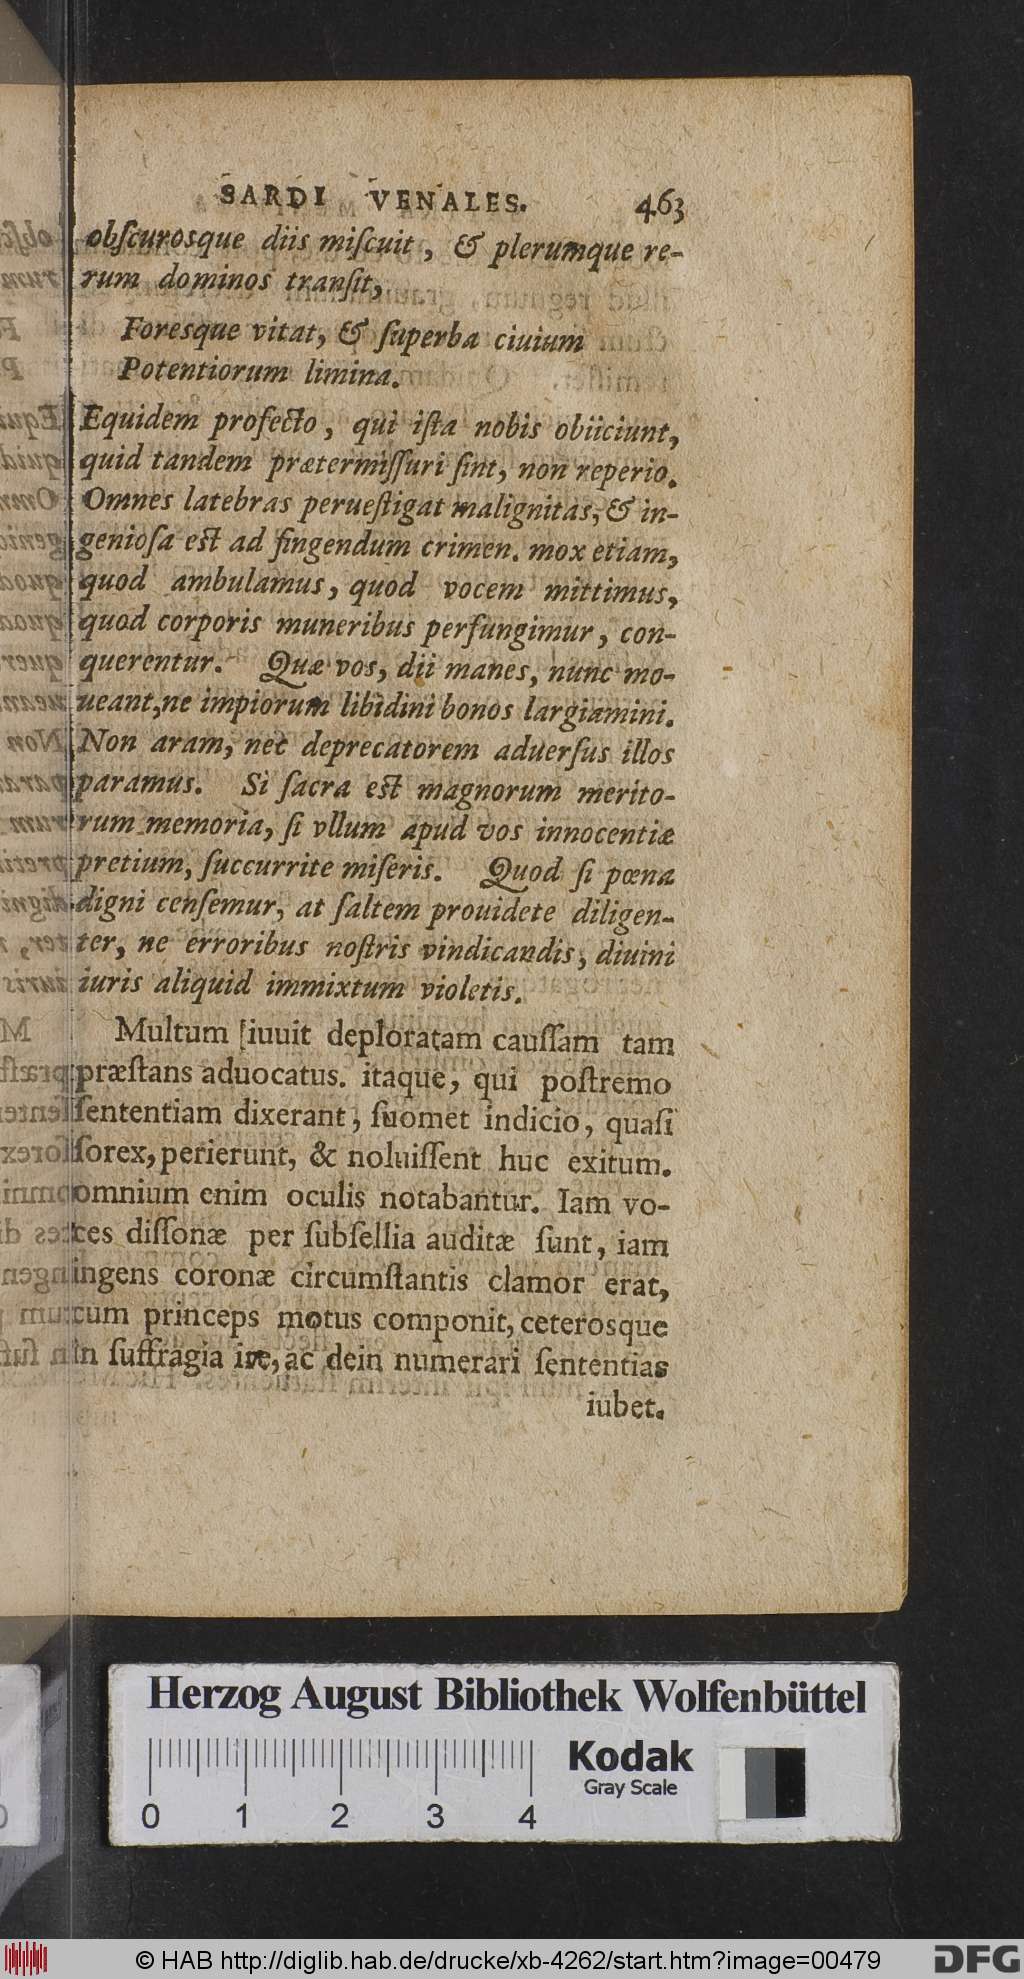 SARDI VENALES. 463
obſcurosque diis miſcuit, & plerumque re-
rum dominos tranſit,
Foresque vitat, & ſuperba ciuium
Potentiorum limina.
Equidem profecto, qui iſta nobis obiiciunt,
quid tandem prætermiſſuri ſint, non reperio.
Omnes latebras perueſtigat malignitas, & in-
genioſa eſt ad fingendum crimen. mox etiam,
quod ambulamus, quod vocem mittimus,
quod corporis muneribus perfungimur, con-
querentur. Quæ vos, dii manes, nunc mo-
ueant, ne impiorum libidini bonos largiamini.
Non aram, nec deprecatorem aduerſus illos
paramus. Si ſacra eſt magnorum merito-
rum memoria, ſi vllum apud vos innocentiæ
pretium, ſuccurrite miſeris. Quod ſi pœna
digni cenſemur, at ſaltem prouidete diligen-
ter, ne erroribus noſtris vindicandis, diuini
iuris aliquid immixtum violetis.
Multum iuuit deploratam cauſſam tam
præſtans aduocatus. itaque, qui poſtremo
ſententiam dixerant, ſuomet indicio, quaſi
ſorex, perierunt, & noluiſſent huc exitum.
omnium enim oculis notabantur. Iam vo-
ces diſſonæ per ſubſellia auditæ ſunt, iam
ingens coronæ circumſtantis clamor erat,
cum princeps motus componit, ceterosque
in ſuffragia ire, ac dein numerari ſententias
iubet.
Herzog August Bibliothek Wolfenbüttel
Kodak
Gray Scale
0 1 2 3 4
© HAB http://diglib.hab.de/drucke/xb-4262/start.htm?image=00479
DFG